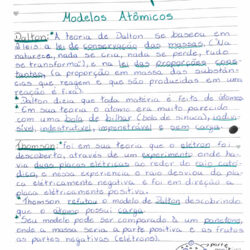 Modelos Atômicos
Dalton: A teoria de Dalton se baseou em
2 leis: a lei de conservação das massas ("Na
natureza, nada se cria, nada se perde, tudo
se transforma"), e na lei das proporções cons-
tantes (a proporção em massa das substân-
cias que reagem e que são produzidas em uma
reação é fixa)
Dalton dizia que toda matéria é feita de átomos
Em sua teoria o átomo era muito parecido
com uma bola de bilhar (bola de sinuca), indivi-
sível, indestrutível, impenetrável e sem carga.
Thomson: foi em sua teoria que o elétron foi
descoberto, através de um experimento onde ha-
via duas placas elétricas ao redor de raio cató-
dico, e nessa experiência o raio desviou da pla-
ca eletricamente negativa e foi em direção a
placa eletricamente positiva.
Thomson refutou o modelo de Dalton descobrindo
que o átomo possui carga.
Seu modelo pode ser comparado à um panetone,
onde a massa seria a parte positiva e as frutas
as partes negativas (elétrons).